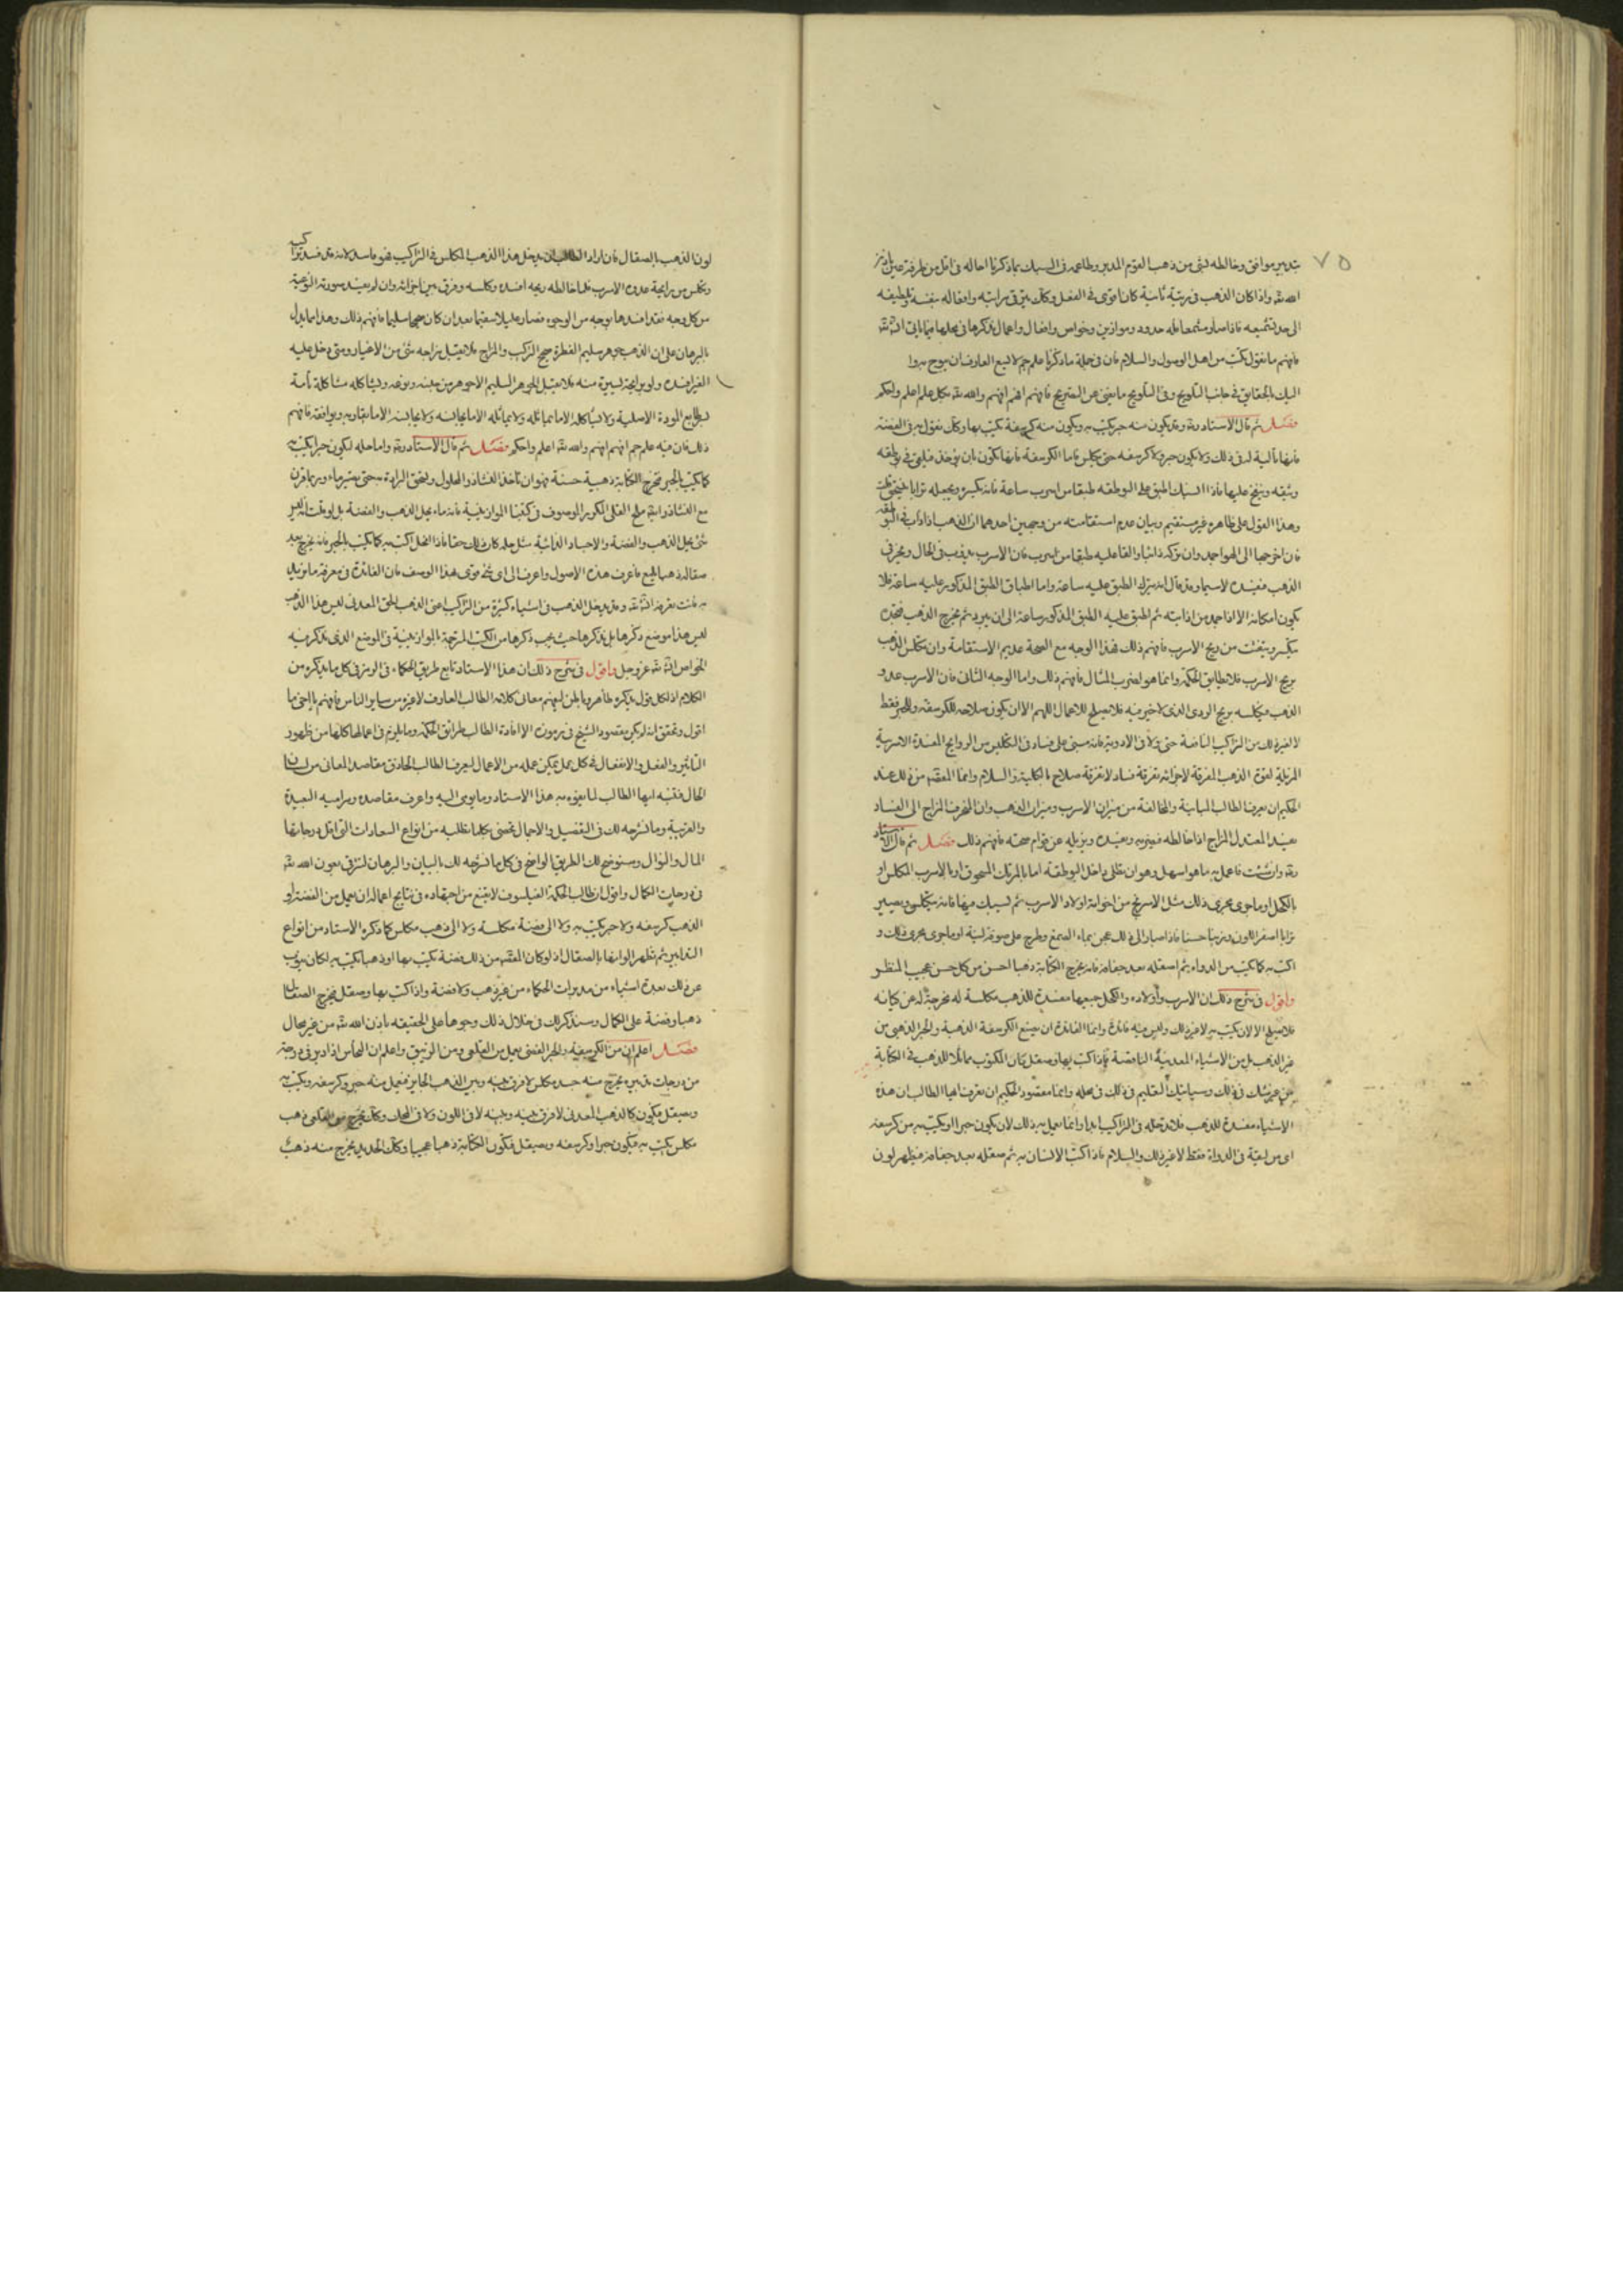 ٧٥
بتدبير موافق وخالطه لشى من ذهب القوم المدبر وطاعمه فى السبك بما ذكرنا احاله فى اقل من طرفة عين باذن
الله تعالى واذا كان الذهب فى رتبة ثانية كان اقوى فى الفعل وكلما يترقى مراتبه وافعاله بنفسه ولطيفه
الى حد تشميعه فاذا صار مشمعا فله حدود وموازين وخواص وافعال واعمال نذكرها فى محلها فيما ياتى
فافهم ما نقول تكن من اهل الوصول والسلام فان فى جملة ما ذكرنا علم جم لا يسع العارف ان يبوح به وا
اليك بالحقايق فى جانب التلويح وفى التلويح ما يغنى عن التصريح فافهم افهم افهم والله بكل علم اعلم واحكم
فصل ثم قال الاستاد وقد يكون منه حبر يكتب به ويكون منه كرسفة يكتب بها وكان نقول به فى الفضة
فانها تالية له فى ذلك ولا يكون حبر ولا كرسفه حتى يكلس فاما الكرسفة فانها تكون بان يؤخذ فيلقى فى بوطقه
وينفخ عليها فاذا انسبك اطبق على البوطقه طبقا من اسرب ساعة فانه يكسره ويجعله ترابا
وهذا القول على ظاهره غير مستقيم وبيان عدم استقامته من وجهين احدهما ان الذهب اذا ذاب فى البوطقه
فان اخرجها الى الهوا جمد وان تركه ذائبا والقا عليه طبقا من اسرب فان الاسرب يذوب فى الحال ويخر فى
الذهب فيفسده لاسيما وقد قال انه يترك الطبق عليه ساعة واما اطباق الطبق المذكور عليه ساعة فلا
يكون امكانه الا اذا جمد من اذابته ثم اطبق عليه الطبق المذكور ساعة الى ان يبرد ثم يخرج الذهب فتجده
يتكسر ويتفتت من ريح الاسرب فافهم ذلك فهذا الوجه مع الصحة عديم الاستقامة وان تكلس الذهب
بريح الاسرب فلا يطابق الحكمة وانما هو لضرب المثال فافهم ذلك واما الوجه الثانى فان الاسرب عدو
الذهب فيكلسه بريح الردى الذى لا خير فيه فلا يصلح للاعمال اللهم الا ان يكون صلاحه للكرسفة والحبر فقط
لا لغير ذلك من التراكيب النافعة حتى ولا فى الادوية فانه مبنى على فساد فى التكليس من الروايح المفسدة الاسربية
المزيلة لقوة الذهب المفرقة لاجزائه تفرقة فساد لا تفرقة صلاح بالكلية والسلام وانما المقصد من ذلك عند
الحكيم ان يعرف الطالب المباينة والمخالفة من ميزان الاسرب وميزان الذهب وان المنحرف المزاج الى الفساد
يفسد المعتدل المزاج اذا خالطه فيغيره ويفسده ويزيله عن قوام صحته فافهم ذلك فصل ثم قال الاستاد
وان شئت فاعمل به ما هو اسهل وهو ان تطلى داخل البوطقة اما بالمرتك المسحوق او بالاسرب المكلس او
بالكحل او ما جرى مجرى ذلك مثل الاسرنج من اخوانه اولاد الاسرب ثم تسبك فيها فانه يتكلس ويصير
ترابا اصفر اللون وتربيا حسنا فاذا صار الى ذلك عجن بماء الصمغ وطرح على صوفة لينة او ما جرى مجرى ذلك و
اكتب به كما تكتب من الدواة ثم اصقله بعد جفافه فانه يخرج الكتابة ذهبا احسن من كل حسن عجيب المنظر
واقول فى شرح ذلك ان الاسرب واولاده والكحل جميعها مفسدة للذهب مكلسة له مخرجة له عن كيانه
فلا يصلح الا لان يكتب به لا غير ذلك وليس فيه فائدة وانما الفائدة ان يصنع الكرسفة الذهبية والحبر الذهبى من
غير الذهب بل من الاشياء المعدنية الناقصة فاذا كتب بها وصقل كان المكتوب مماثلا للذهب فى الكتابة
من غير شك فى ذلك وسياتيك التعليم فى ذلك فى محله وانما مقصود الحكيم ان تعرف ايها الطالب ان هذه
الاشياء مفسدة للذهب فلا تدخله فى التراكيب ابدا وانما نعمل به ذلك لان يكون حبرا او يكتب به من كرسفه
اى من ليقة فى الدواة فقط لا غير ذلك والسلام فاذا كتب الانسان به ثم صقله بعد جفافه فيظهر لون
لون الذهب بالصقال فان اراد الطالب ان يدخل هذا الذهب المكلس فى التراكيب فهو فاسد لانه قد فسد تراكيب
وتكلس من رايحة عدوه الاسرب فلما خالطه ريحه افسده وكلسه وفرق بين اجزائه وان لم يفسد صورته النوعية
من كل وجه فقد افسدها بوجه من الوجوه فصار عليلا سقيما بعد ان كان صحيحا سليما فافهم ذلك وهذا مما يدل
بالبرهان على ان الذهب جوهر سليم الفطرة صحيح التركيب والمزاج فلا يقبل مزاجه شئ من الاغيار ومتى دخل عليه
الغير افسده ولو برايحة يسيرة منه فلا يقبل الجوهر السليم الا جوهر من جنسه ونوعه ويشاكله مشاكلة تامة
لطابع المودة الاصلية ولا يشاكله الا ما يماثله ولا يماثله الا ما يجانسه ولا يجانسه الا ما يقاربه ويوافقه فافهم
ذلك فان فيه علم جم افهم افهم والله اعلم واحكم فصل ثم قال الاستاد واما حله ليكون حبرا يكتب به
كما يكتب بالحبر فتخرج الكتابة ذهبية حسنة فهو ان تاخذ النشاذر المحلول وتسحق البرادة به حتى يصير ماء وربما قرن
مع النشاذر ملح القلى المكرر الموصوف فى كتبنا الموازينية فانه ماء يحل الذهب والفضة بل لو قلت انه لغير
شئ يحل الذهب والفضة والاجساد الذائبة مثل حله كان ذلك حقا فاذا انحل اكتب به كما تكتب بالحبر فانه يخرج بعد
صقاله ذهبا فاعرف هذه الاصول واعرف الى اى شئ قوى هذا الوصف فان الفائدة فى معرفة ما نريد
به فانت تعرفه وقد يدخل الذهب فى اشياء كثيرة من التراكيب اعنى الذهب الحى المعدنى ليس هذا الذهب
ليس هذا موضع ذكرها بل نذكرها حيث يجب ذكرها من الكتب المترجمة بالموازينية فى الموضع الذى نذكر فيه
الخواص عز وجل واقول فى شرح ذلك ان هذا الاستاد تابع طريق الحكماء فى الرمز فى كل ما يذكره من
الكلام اذ لكل قول يذكره ظاهر وباطن ليفهم معانى كلامه الطالب العارف لا غيره من ساير الناس فافهم يا اخى ما
اقول وتحقق انه لم يكن مقصود الشيخ فى رموزه الا افادة الطالب طرائق الحكمة وما يلوح فى اعمالها كلها من ظهور
التاثير والفعل والانفعال فى كل عمل يمكن عمله من الاعمال ليعرف الطالب الحاذق مقاصد المعانى من لسان
الحال فتنبه ايها الطالب لما يفوه به هذا الاستاد وما يومى اليه واعرف مقاصده ومراميه البعيدة
والقريبة وما نشرحه لك فى التفصيل والاجمال تحضى بكلما تطلبه من انواع السعادات التى اقل درجاتها
المال والنوال وسنوضح لك الطريق الواضح فى كل ما نشرحه لك بالبيان والبرهان لترقى بعون الله
فى درجات الكمال واقول ان طالب الحكمة الفيلسوف لا يقنع من اجتهاده فى نتايج اعماله ان يعمل من الفضة او
الذهب كرسفه ولا حبر يكتب به ولا الى فضة مكلسة ولا الى ذهب مكلس كما ذكره الاستاد من انواع
التدابير ثم تظهر الوانها بالصقال اذ لو كان المقصد من ذلك فضة يكتب بها او ذهبا يكتب به لكان ينوب
عن ذلك بعدة اشياء من مدبرات الحكماء من غير ذهب ولا فضة واذا كتب بها وصقل يخرج الصقال
ذهبا وفضة على الكمال وسنذكر لك فى خلال ذلك وجوها على الحقيقه باذن الله من غير محال
فصل اعلم ان من الكرسفية والحبر الفضى يعمل من القلعى ومن الزيبق واعلم ان النحاس اذا دبر فى درجة
من درجات تدبيره يخرج منه جسد مكلس لا فرق بينه وبين الذهب الحايز فيعمل منه حبر وكرسفه ويكتب به
ويصقل فيكون كالذهب المعدنى لا فرق بينه وبينه لا فى اللون ولا فى المحك وكان يخرج من القلعى ذهب
مكلس يكتب به فيكون حبرا وكرسفه ويصقل فتكون الكتابة ذهبا عجيبا وكان الحديد يخرج منه ذهب